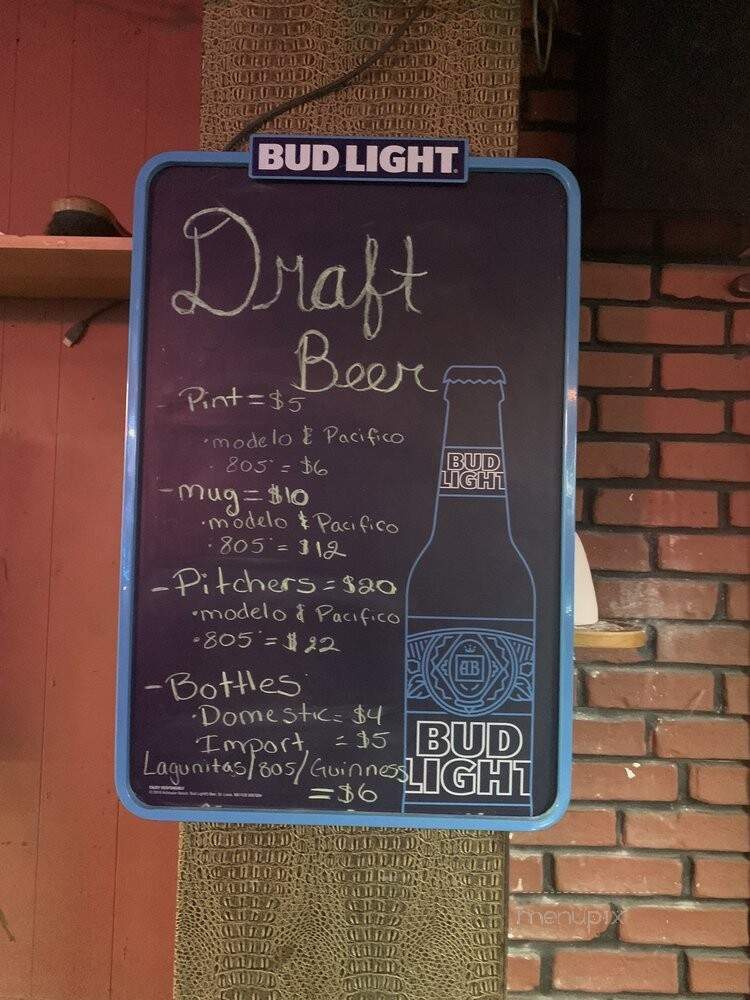 BUD LIGHT
Draft
Beer
- Pint = $5
· modelo & Pacifico
· 805 = $6
- mug = $10
· modelo & Pacifico
· 805 = $12
- Pitchers = $20
· modelo & Pacifico
· 805 = $22
- Bottles
· Domestic = $4
Import = $5
Lagunitas/805/Guinness
= $6
BUD
LIGHT
AB
BUD
LIGHT
ENJOY RESPONSIBLY
menupix